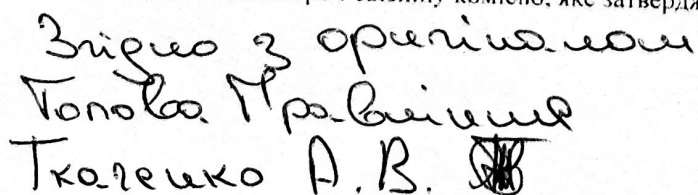 комісію, яке затвердж
Згідно з оригіналом
Голова Правління
Ткаченко А. В.